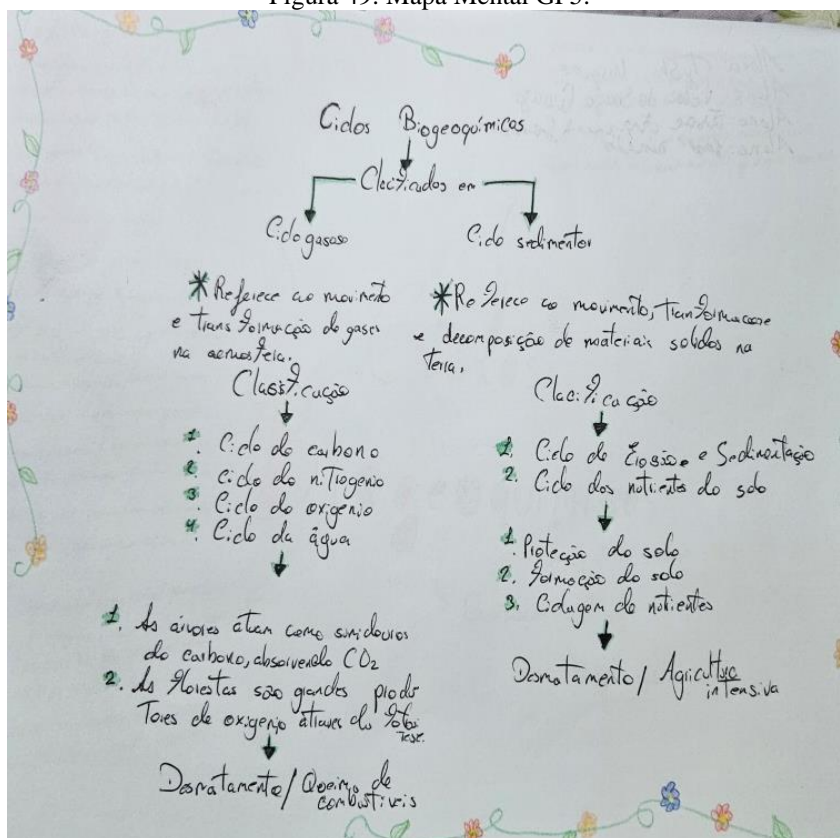 Figura 49: Mapa Mental GP3.
Ciclos Biogeoquímicos
Clacificados em
Ciclo gasoso
* Referece ao movimento
e transformação de gases
na
Classificação
1. Ciclo do carbono
2. ciclo do nitrogenio
3. Ciclo do oxigenio
4. Ciclo da água
1. As arvores atuam como sumidouros
do carbono, absorvendo CO2
2. As florestas são grandes produ
tores de oxigenio atraves da
Desmatamento / Queima de
combustiveis
Ciclo sedimentar
* Referece ao movimento,
e decomposição de materiais solidos na
terra.
Clacificação
1. Ciclo de Erosão e Sedimentação
2. Ciclo dos nutrientes do solo
1. Proteção do solo
2. Formação do solo
3. Ciclagem de nutrientes
Desmatamento / Agricultura
intensiva